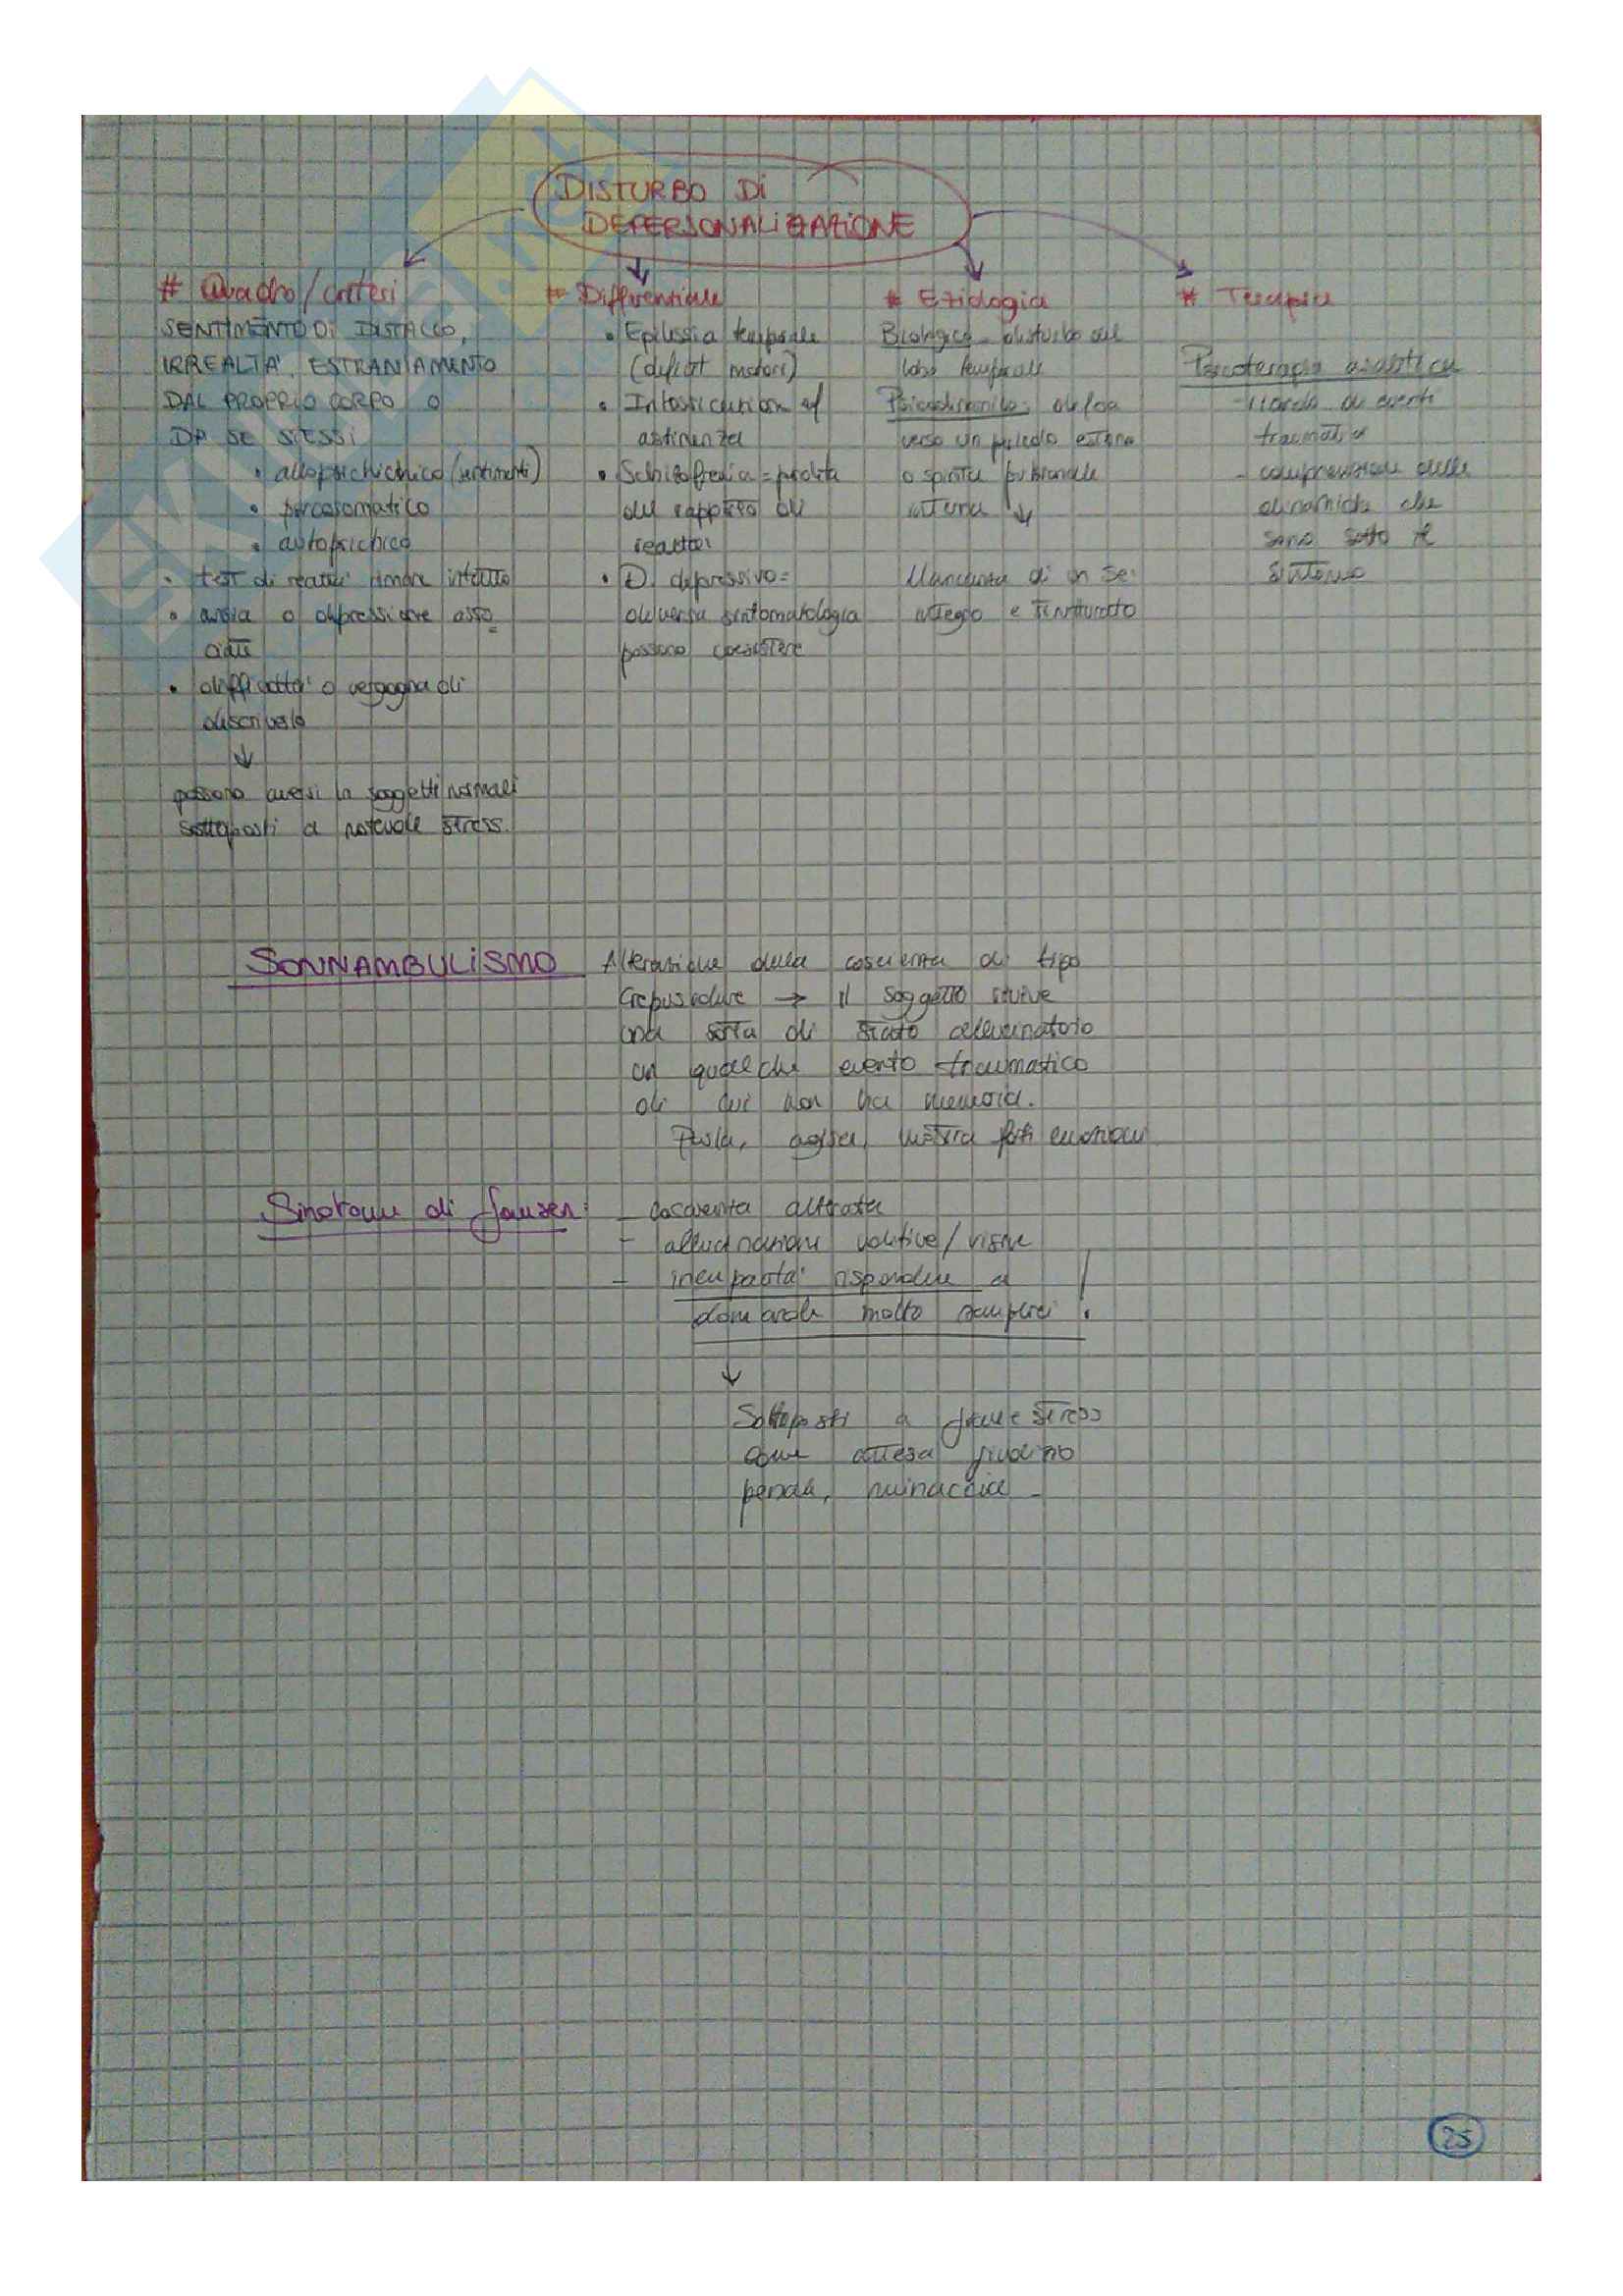 DISTURBO DI
DEPERSONALIZZAZIONE
# Quadro/criteri
SENTIMENTO DI DISTACCO,
IRREALTA', ESTRANIAMENTO
DAL PROPRIO CORPO O
DA SE STESSI
• allopsichichico (sentimenti)
•
• autopsichico
• test di realtà rimane intatto
• ansia o depressione asso=
ciate
• difficoltà o vergogna di
descriverlo
↓
possono aversi in soggetti normali
sottoposti a notevole stress.
# Differenziale
• Epilessia temporale
(deficit motori)
• Intossicazioni e/
astinenza
• Schizofrenia = perdita
del rapporto di
realtà
• D. depressivo =
diversa sintomatologia
possono coesistere
# Eziologia
Biologica - disturbo del
lobo temporale
Psicodinamica: difesa
verso un pericolo esterno
o spinta pulsionale
interna ↓
Mancanza di un se'
integro e strutturato
# Terapia
Psicoterapia analitica
- ricordo di eventi
traumatici
- comprensione delle
dinamiche che
sono sotto il
sintomo
SONNAMBULISMO Alterazione della coscienza di tipo
Crepuscolare → il soggetto rivive
una sorta di stato allucinatorio
un qualche evento traumatico
di cui non ha memoria.
Parla, agisce, mostra forti emozioni
Sindrome di Ganser: - coscienza alterata
- allucinazioni uditive/visive
- incapacità rispondere a
domande molto semplici !
↓
Sottoposti a grave stress
come attesa giudizio
penale, minaccia -
25